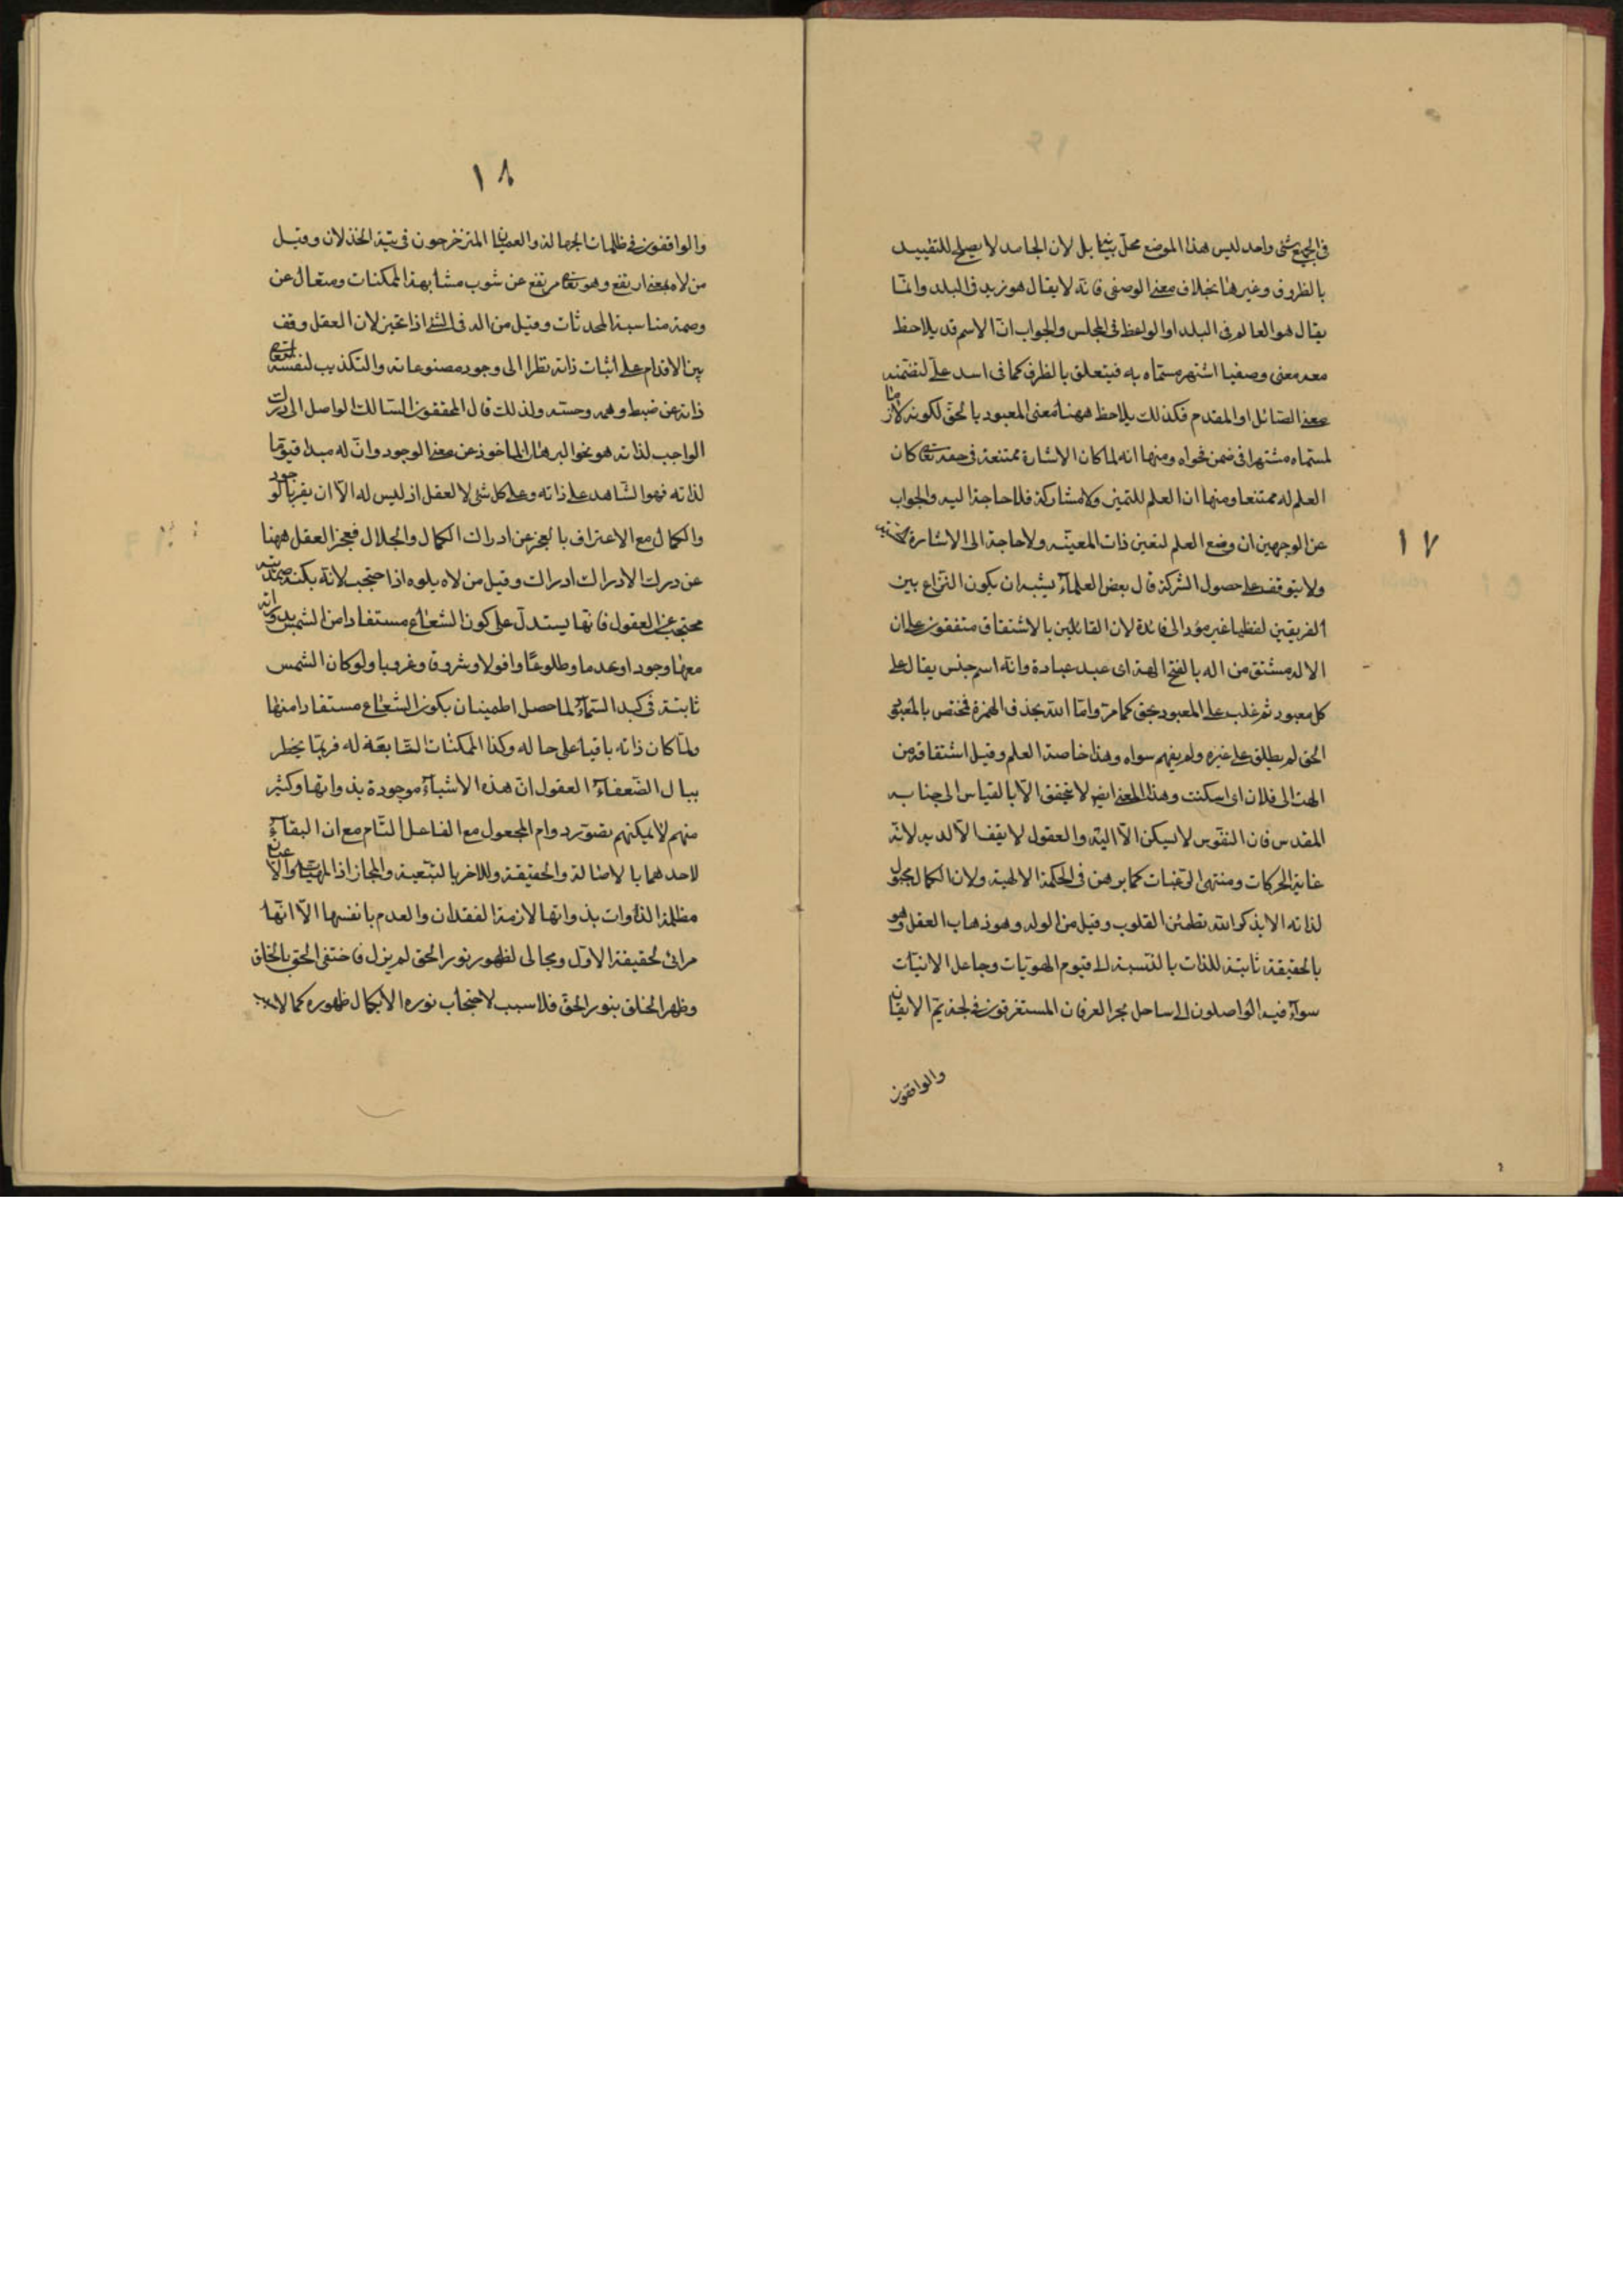 ١٧
فى الجميع شئ واحد ليس هذا الموضع محل بيانها بل لان الجامد لا يصلح للتقييد
بالظروف وغيرها بخلاف معنى الوصفى فانه لا يقال هو زيد فى البلد وانما
يقال هو العالم فى البلد او الواعظ فى المجلس والجواب ان الاسم قد يلاحظ
معه معنى وصفيا اشتهر مسماه به فيتعلق بالظرف كما فى اسد على لتضمنه
معنى الصائل او المقدم فكذلك يلاحظ ههنا معنى المعبود بالحق لكونه لازما
لمسماه مشتهرا فى ضمن فحواه ومنها انه لما كان الاشارة ممتنعة فى حقه تعالى كان
العلم له ممتنعا ومنها ان العلم للتميز ولا مشاركة فلا حاجة اليه والجواب
عن الوجهين ان وضع العلم لتعين ذات المعينة ولا حاجة الى الاشارة الحسية
ولا يتوقف على حصول الشركة قال بعض العلماء يشبه ان يكون النزاع بين
الفريقين لفظيا غير مؤد الى فائدة لان القائلين بالاشتقاق متفقون على ان
الاله مشتق من اله بالفتح الهة اى عبد عبادة وانه اسم جنس يقال على
كل معبود ثم غلب على المعبود بحق كما مر واما الله بحذف الهمزة فمختص بالمعبود
الحق لم يطلق على غيره ولم يفهم سواه وهذا خاصة العلم وقيل اشتقاقه من
الهت الى فلان اى سكنت وهذا المعنى ايض لا يتحقق الا بالقياس الى جنابه
المقدس فان النفوس لا يسكن الا اليه والعقول لا يقف الا لديه لانه
غاية الحركات ومنتهى الرغبات كما برهن فى الحكمة الالهية ولان الكمال محبوب
لذاته الا بذكر الله تطمئن القلوب وقيل من الوله وهو ذهاب العقل وهو
بالحقيقة ثابتة للذات بالنسبة الى قيوم الهويات وجاعل الانيات
سواء فيه الواصلون الى ساحل بحر العرفان المستغرقون فى لجة يم الايقان
والواقفون
١٨
والواقفون فى ظلمات الجهالة والعميان المتزخرجون فى تيه الخذلان وقيل
من لاه بمعنى ارتفع وهو تعالى مرتفع عن شوب مشابهة الممكنات ومتعال عن
وصمة مناسبة المحدثات وقيل من اله فى الشئ اذا تحير لان العقل وقف
بين الاقدام على اثبات ذاته نظرا الى وجود مصنوعاته والتكذيب لنفسه لتعالى
ذاته عن ضبط وهمه وحسه ولذلك قال المحققون السالك الواصل الى درك
الواجب لذاته هو نحو البرهان الماخوذ عن معنى الوجود وان له مبدا قيوما
لذاته فهو الشاهد على ذاته وعلى كل شئ لا العقل اذ ليس له الا ان يقر بالوجود
والكمال مع الاعتراف بالعجز عن ادراك الكمال والجلال فعجز العقل ههنا
عن درك الادراك ادراك وقيل من لاه يلوه اذا احتجب لانه بكنه صمديته
محتجب عن العقول فانها يستدل على كون الشعاع مستفادا من الشمس بدورانه
معها وجودا وعدما وطلوعا وافولا وشروقا وغروبا ولو كان الشمس
ثابتة فى كبد السماء لما حصل اطمينان بكون الشعاع مستفادا منها
ولما كان ذاته باقيا على حاله وكذا الممكنات التابعة له فربما يخطر
ببال الضعفاء العقول ان هذه الاشياء موجودة بذواتها وكثير
منهم لا يمكنهم تصور دوام المجعول مع الفاعل التام مع ان البقاء
لاحدهما بالاصالة والحقيقة وللاخر بالتبعية والمجاز اذ المهيات والاعيان
مظلمة الذاوات بذواتها لازمة الفقدان والعدم بانفسها الا انها
مرائى لحقيقة الاول ومجالى لظهور نور الحق لم يزل فاختفى الحق بالخلق
وظهر الخلق بنور الحق فلا سبب لاحتجاب نوره الا كمال ظهوره كما لا